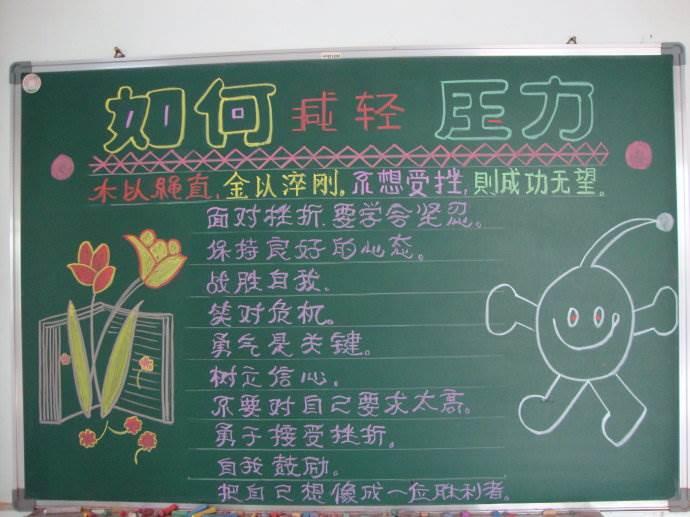 如何减轻压力
木以繩直,金以淬刚。不想受挫,則成功无望。
面对挫折,要学会坚忍。
保持良好的心态。
战胜自我.
笑对危机。
勇气是关键。
树立信心.
不要对自己要求太高。
勇于接受挫折.
自我鼓励。
把自己想像成一位胜利者。